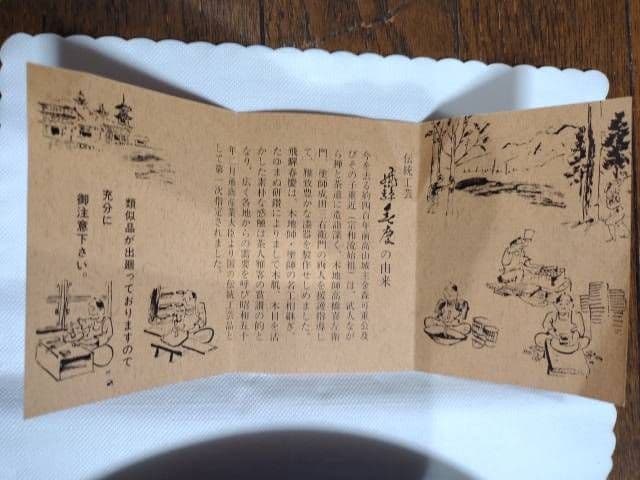 伝統工芸
飛騨春慶の由来
今を去る約四百年前高山城主金森宗重公及
びその子重近（宗和流始祖）は、武人なが
ら禅と茶道に造詣深く、木地師高橋喜左衛
門、塗師成田三右衛門の両人を援護指導し
て、雅致豊かな漆器を製作せしめました。
飛騨春慶は、木地師・塗師の名工相継ぎ、
たゆまぬ研鑽によりまして木肌、木目を活
かした素朴な感触は茶人雅客の賞讃の的と
なり、広く各地からの需要を呼び昭和五十
年二月通商産業大臣より国の伝統工芸品と
して第一次指定されました。
類似品が出廻っておりますので
充分に
御注意下さい。